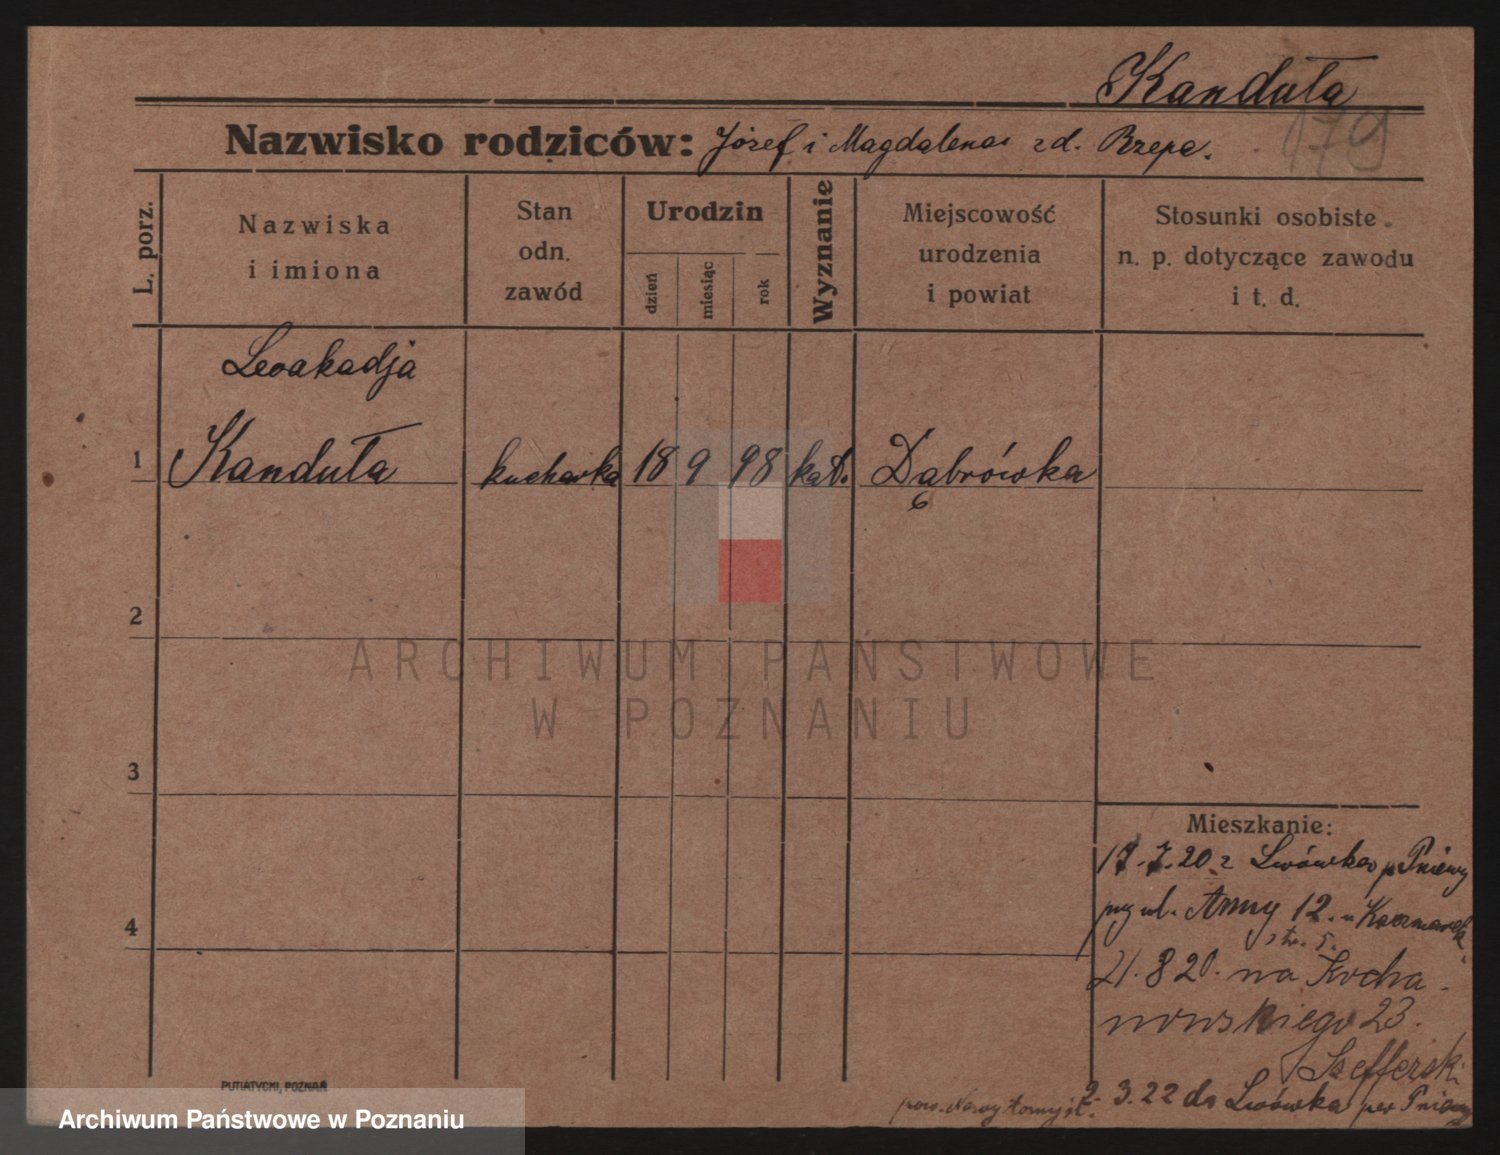 Kanduła
179
Nazwisko rodziców: Józef i Magdalena zd. Rzepa.
L. porz.
Nazwiska
i imiona
Stan
odn.
zawód
Urodzin
dzień
miesiąc
rok
Wyznanie
Miejscowość
urodzenia
i powiat
Stosunki osobiste
n. p. dotyczące zawodu
i t. d.
Leoakadja
1 Kanduła kucharka 18 9 98 kat. Dąbrówka
2
ARCHIWUM PAŃSTWOWE
W POZNANIU
3
Mieszkanie:
17.7.20. z Lwówka p Pniewy
12. u Kaczmarek
21.8 20. na Kocha-
nowskiego 23.
Szefferski
2. 3.22 do Lwówka per Pniewy
pow. Nowy Tomyśl.
4
PUTIATYCKI, POZNAŃ
Archiwum Państwowe w Poznaniu